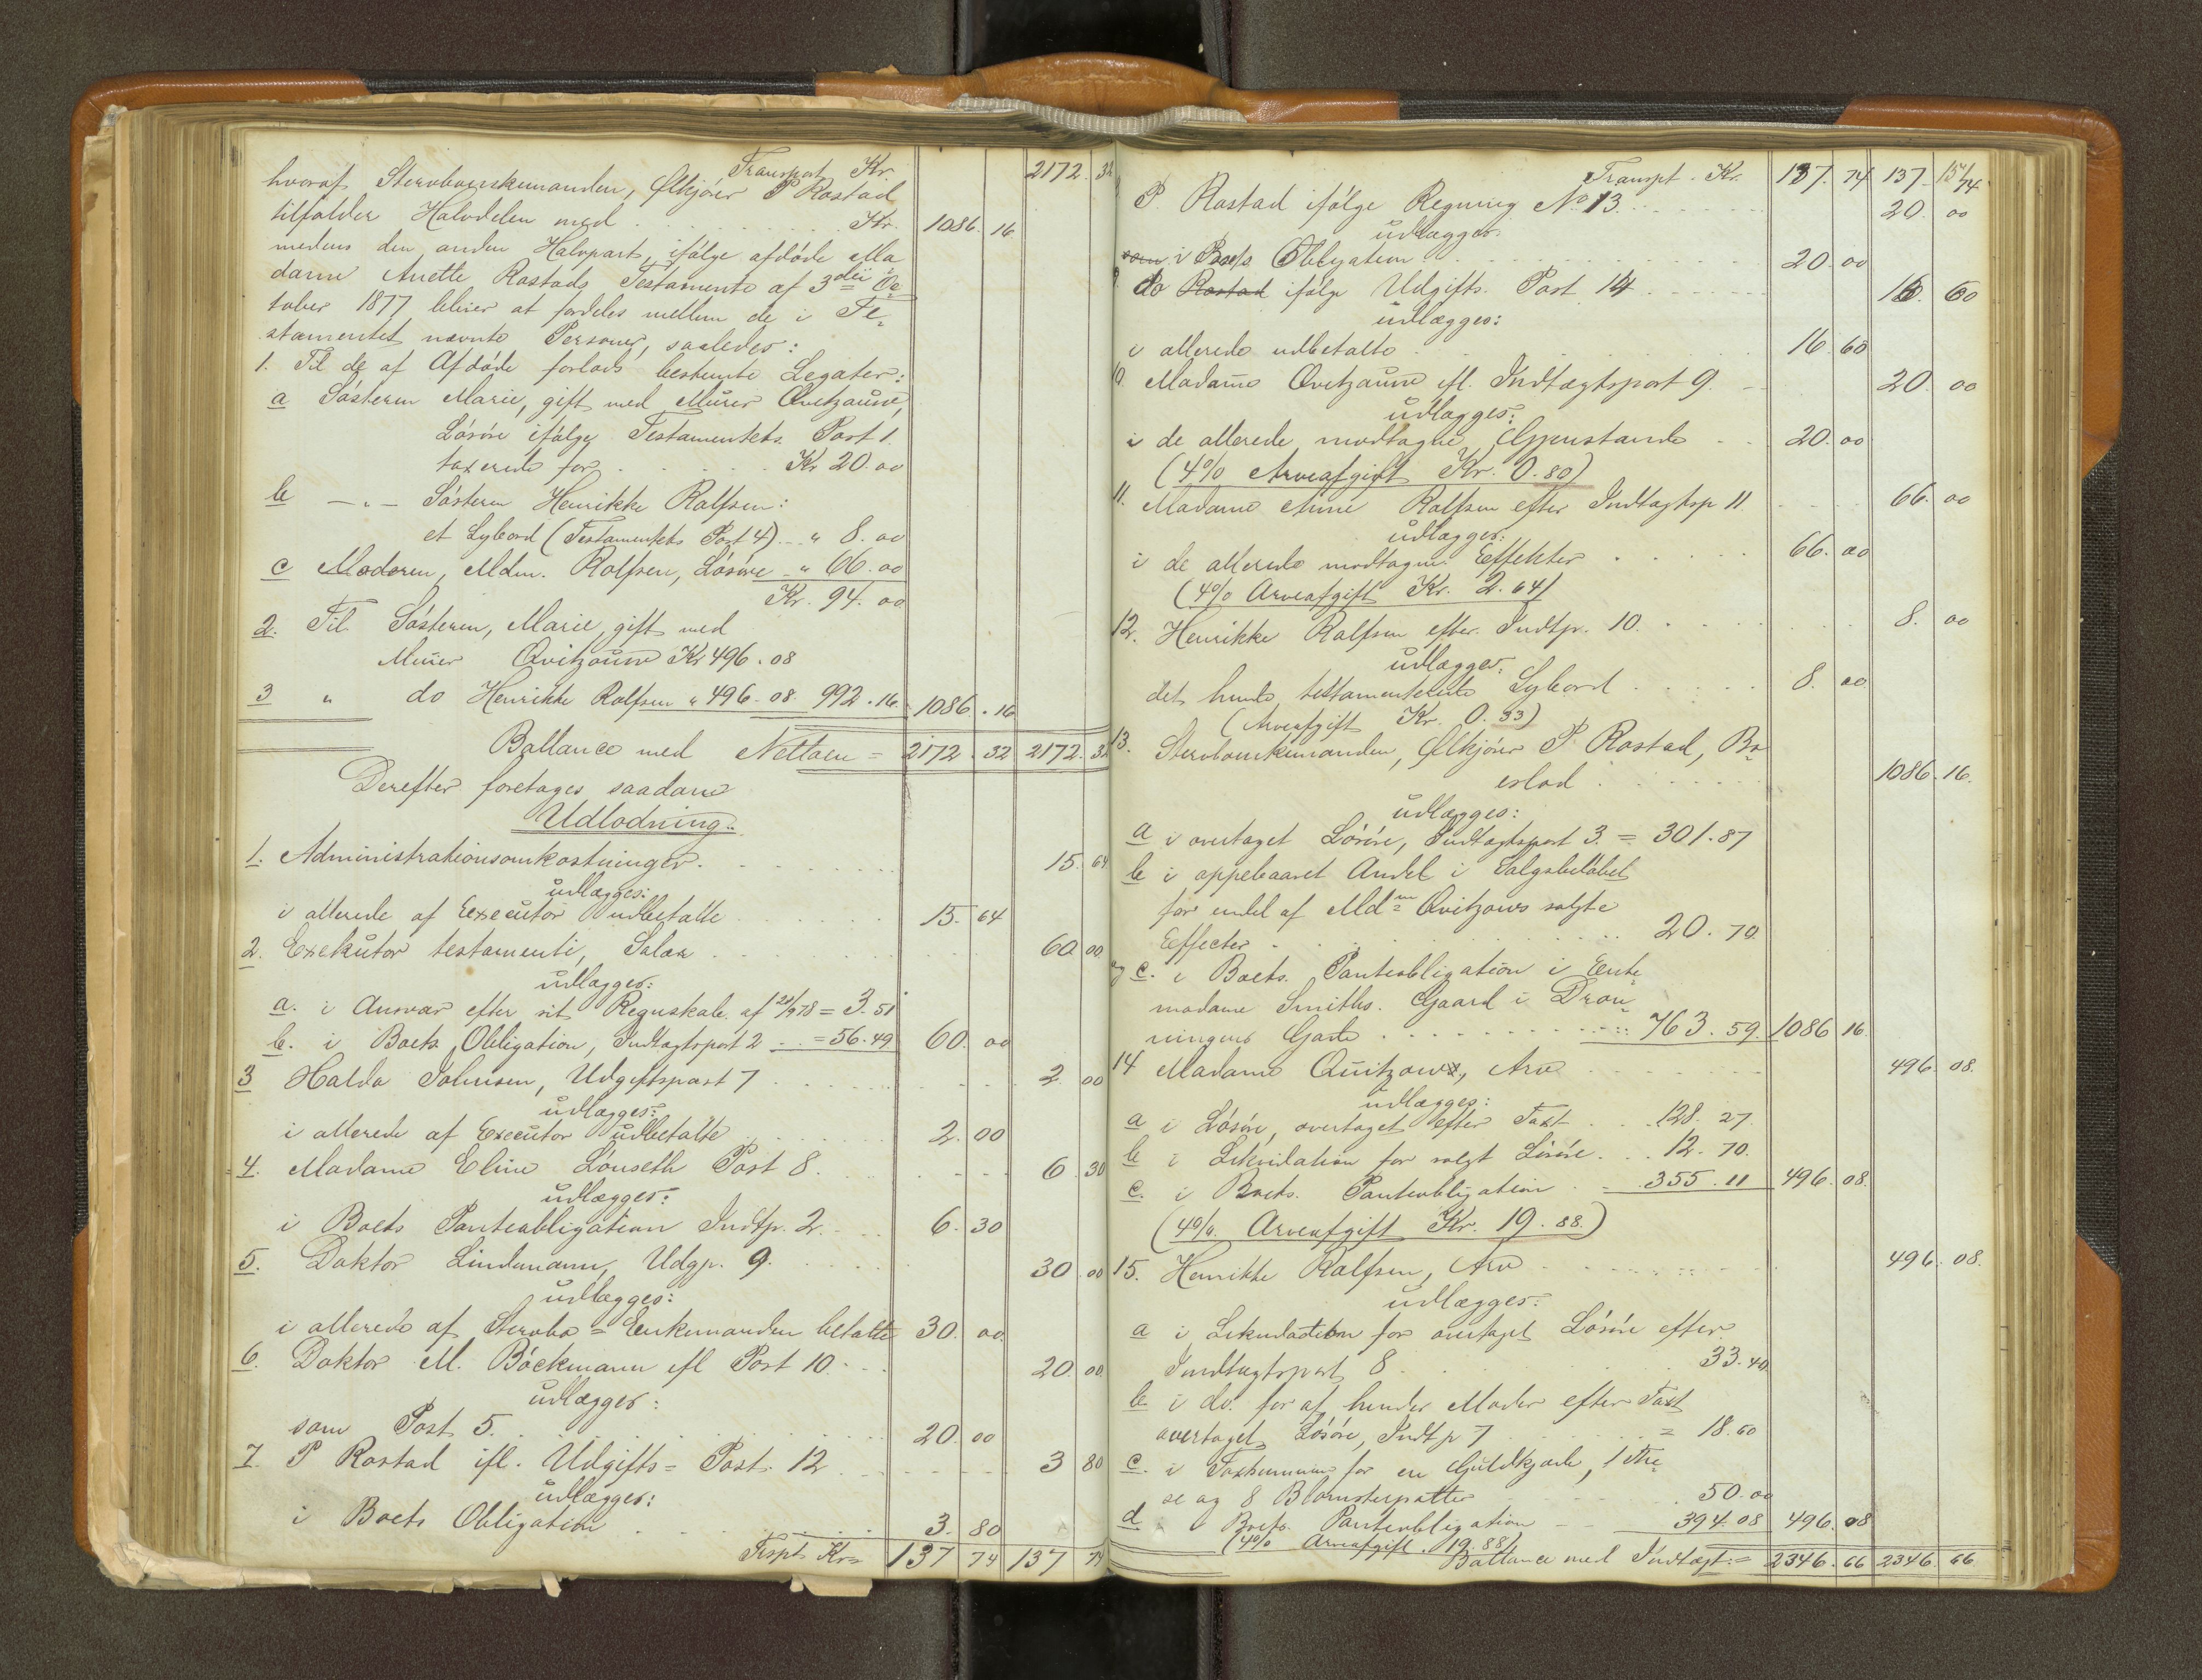 Transport Kr. 2172. 32
hvoraf Stervboenkemanden, Ølkjører P Rostad
tilfalder Halvdelen med . . . Kr. 1086. 16
medens den anden Halvpart, ifølge afdøde Ma
dame Anette Rostads Testamente af 3die Oc
tober 1877 bliver at fordeles mellem de i Te
stamentet nævnte Personer, saaledes:
1. Til de af Afdøde forlods bestemte Legater:
a Søsteren Marie, gift med Murer Qvitzaune,
Løsøre ifølge Testamentets Post 1.
taxerede for . . . Kr 20. 00
b —„— Søsteren Henrikke Rolfsen:
et Sybord (Testamentets Post 4) - „ 8. 00
c Moderen, Mdm. Rolfsen, Løsøre - „ 66. 00
Kr. 94. 00
2. Til Søsteren, Marie, gift med
Murer Qvitzoune Kr 496. 08
3 „ do Henrikke Rolfsen „ 496. 08. 992. 16. 1086. 16
Ballance med Nettoen = 2172. 32 2172. 32
Derefter foretages saadan
Udlodning.
1. Administrationsomkostninger. 15. 64
udlægges:
i allerede af Executor udbetalte 15. 64
2. Exekutor testamenti, Salær 60. 00
udlægges:
a. i Ansvar efter sit Regnskab af 20/9 78 = 3. 51
b. i Boets Obligation, Indtægtspost 2 = 56. 49 60. 00
3 Halda Johnsen, Udgiftspost 7 2. 00
udlægges:
i allerede af Executor udbetalte 2. 00
4. Madame Eline Lønseth Post 8. 6. 30
udlægges:
i Boets Panteobligation Indtp. 2. 6. 30
5. Doktor Lindemann, Udgp. 9. 30. 00
udlægges:
i allerede af Stervbo = Enkemanden betalte 30. 00
6. Doktor M. Bøckmann ifl Post 10. 20. 00
udlægges:
som Post 5. 20. 00
7. P Rostad ifl. Udgifts = Post. 12 3 80
udlægges:
i Boets Obligation 3. 80
Trspt Kr= 137 74 137 74
Transpt. Kr. 137. 74 137. 74
P. Rostad ifølge Regning No 13. 20. 00
udlægges
som i Boets Obligation 20. 00
do Rostad ifølge Udgifts. Post 14 16. 60
udlægges:
i allerede udbetalte 16. 60
10. Madame Qvitzaune ifl. Indtægtspost 9. 20. 00
udlægges:
i de allerede modtagne Gjenstande 20. 00
(4% Arveafgift Kr. 0. 80)
11. Madame Anne Rolfsen efter Indtægtsp 11 66. 00
udlægges:
i de allerede modtagne Effekter 66. 00
(4% Arveafgift Kr. 2. 64)
12. Henrikke Rolfsen efter Indtp. 10. 8. 00
udlægges:
det hende testamenterede Sybord 8. 00
(Arveafgift Kr. 0. 33)
13. Stervboenkemanden, Ølkjører P. Rostad, Bo
eslod 1086. 16.
udlægges:
a i overtaget Løsøre, Indtægtspost 3. = 301. 87
b i oppebaaret Andel i Salgsbeløbet
for endel af Mdm Qvitzows solgte
Effecter 20. 70
og c. i Boets Panteobligation i Enke
madame Smiths. Gaard i Dron
ningens Gade 763. 59. 1086 16.
14 Madame Quitzow, Arv 496. 08.
udlægges:
a i Løsøre, overtaget efter Taxt 128. 27.
b i Likvidation for solgt Løsøre 12. 70.
c. i Boets. Panteobligation = 355. 11 496. 08.
(4% Arveafgift Kr. 19. 88.)
15. Henrikke Rolfsen, Arv 496. 08.
udlægges:
a i Likvidation for overtaget Løsøre efter
Indtægtspost 8 33. 40
b i do. for af hendes Moder efter Taxt
overtaget Løsøre, Indtp 7 = 18. 60
c. i Taxtsummen for en Guldkjæde, 1
se og 8 Blomsterpotter 50. 00
d i Boets. Panteobligation 394. 08 496. 08
(4% Arveafgift. 19. 88)
Ballance med Indtægt: = 2346. 66 2346. 66